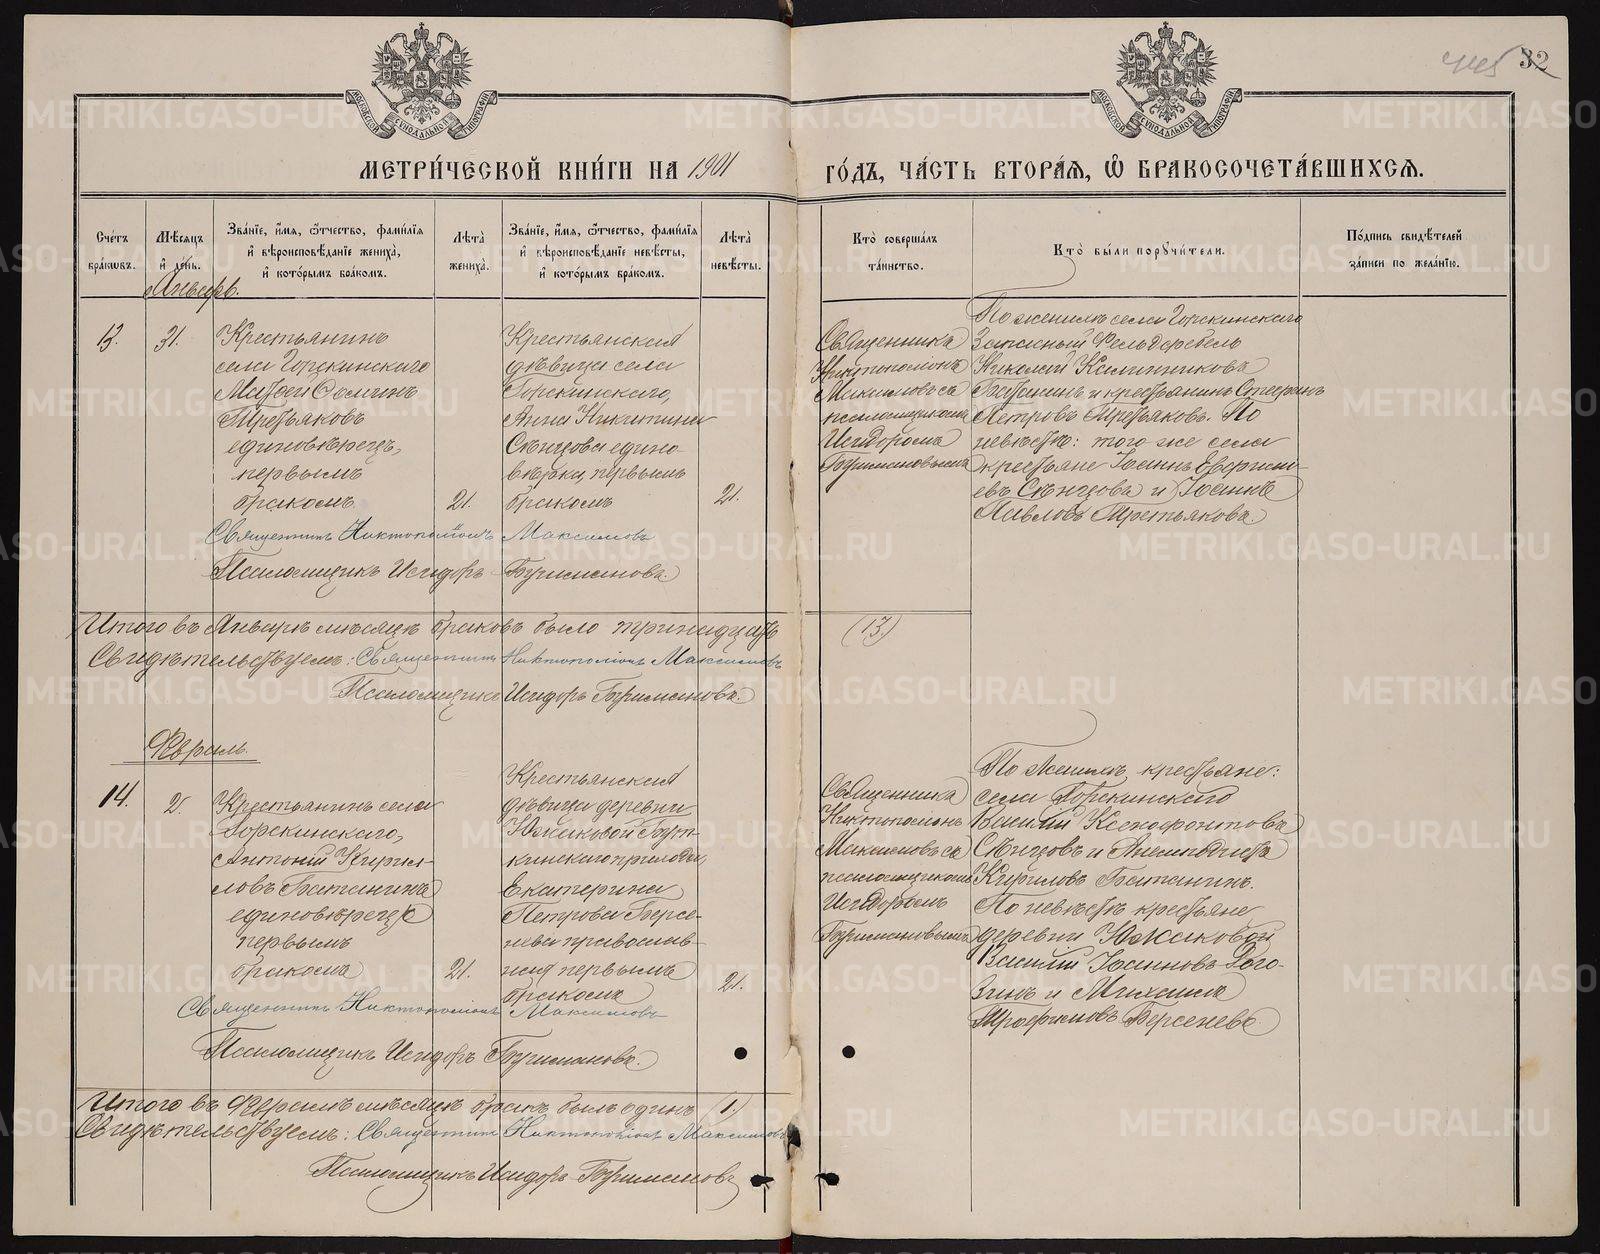 МОСКОВСКОЙ СѴНОДАЛЬНОЙ ТИПОГРАФІИ
МОСКОВСКОЙ СѴНОДАЛЬНОЙ ТИПОГРАФІИ
32
МЕТРИ́ЧЕСКОЙ КНИ́ГИ НА 1901
ГО́ДЪ, ЧА́СТЬ ВТОРА́Я, Ѽ БРАКОСОЧЕТА́ВШИХСЯ.
Сче́тъ браковъ.
Мѣсяцъ и҆ де́нь.
Зва́нїе, и҆́мя, ѻ҆́тчество, фами́лїя и҆ вѣроисповѣ́данїе жениха̀, и҆ кото́рымъ бра́комъ.
Лѣта̀ жениха̀.
Зва́нїе, и҆́мя, ѻ҆́тчество, фами́лїя и҆ вѣроисповѣ́данїе невѣ́сты, и҆ кото́рымъ бра́комъ.
Лѣта̀ невѣ́сты.
Кто̀ соверша́лъ та́инство.
Кто̀ бы́ли порꙋчи́тели.
По́дпись свидѣ́телей за́писи по жела́нїю.
Январь.
13.
31.
Крестьянинъ
села Горскинскаго
Третьяковъ
единовѣрецъ,
первымъ
бракомъ
21.
Крестьянская
дѣвица села
Горскинскаго,
Анна Никитина
Сѣнцова едино-
вѣрка, первымъ
бракомъ
21.
Священникъ
Максимовъ съ
псаломщикомъ
Исидоромъ
По женихѣ села Горскинскаго
Запасный Фельдфебель
Николай Калинниковъ
и крестьянинъ Стефанъ
Петровъ Третьяковъ. По
невѣстѣ: того же села
крестьяне Іоаннъ
евъ Сѣнцовъ и Іоаннъ
Павловъ Третьяковъ.
Священникъ Никтополіонъ Максимовъ
Псаломщикъ Исидоръ
Итого въ Январѣ мѣсяцѣ браковъ было тринадцать
(13)
Свидѣтельствуемъ: Священникъ Никтополіонъ Максимовъ
Псаломщикъ Исидоръ
Февраль.
14.
2.
Крестьянинъ села
Горскинскаго,
Антоній Кирил-
ловъ
единовѣрецъ
первымъ
бракомъ
21.
Крестьянская
дѣвица деревни
Южаковой
кинскаго прихода,
Екатерина
Петрова Берсе-
нева православ-
ная первымъ
бракомъ
21.
Священникъ
Никтополіонъ
Максимовъ съ
псаломщикомъ
Исидоромъ
По женихѣ, крестьяне:
села Горскинскаго
Василій Ксенофонтовъ
Сѣнцовъ и
Кириловъ
По невѣстѣ крестьяне
деревни Южаковой
Василій Іоанновъ Рого-
зинъ и Михаилъ
Трофимовъ Берсеневъ.
Священникъ Никтополіонъ Максимовъ
Псаломщикъ Исидоръ
Итого въ Февралѣ мѣсяцѣ бракъ былъ одинъ (1.)
Свидѣтельствуемъ: Священникъ Никтополіонъ Максимовъ
Псаломщикъ Исидоръ
METRIKI.GASO-URAL.RU